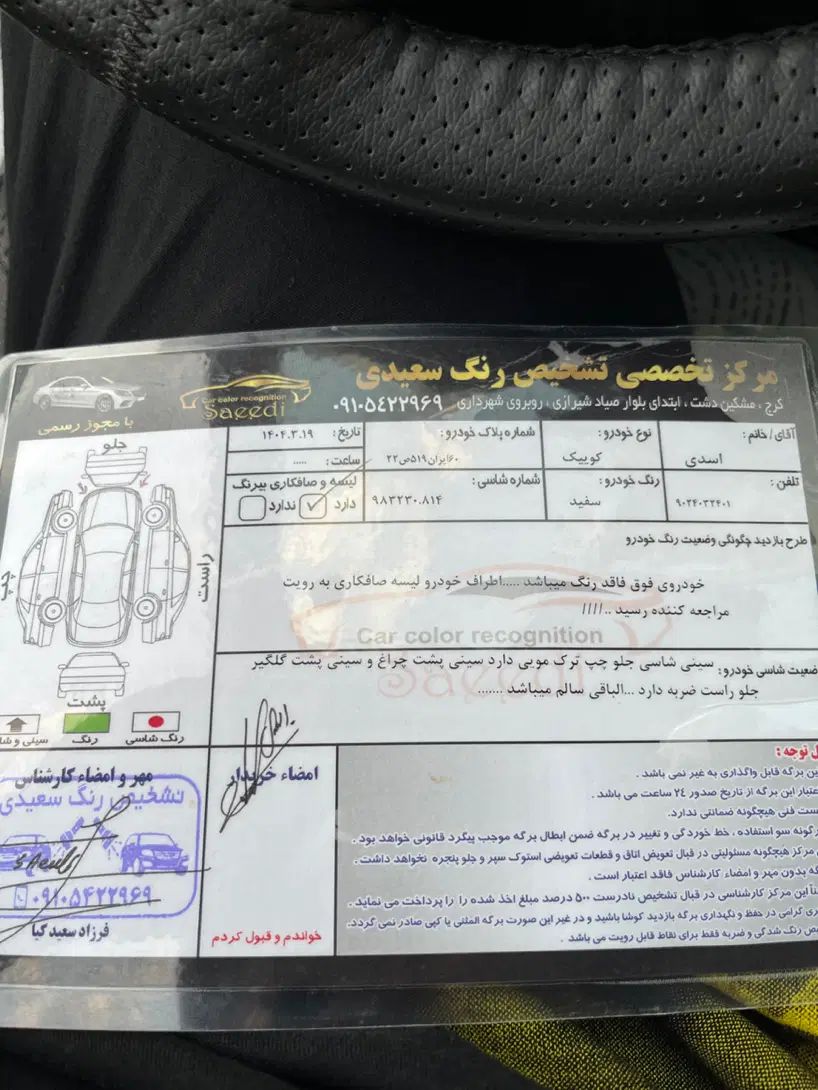 مرکز تخصصی تشخیص رنگ سعیدی
کرج ، مشکین دشت ، ابتدای بلوار صیاد شیرازی ، روبروی شهرداری ۰۹۱۰۵۴۲۲۹۶۹
Car color recognition
Saeedi
با مجوز رسمی
آقای/خانم :
اسدی
نوع خودرو:
کوییک
شماره پلاک خودرو:
۶۰ایران۵۱۹ص۲۲
تاریخ: ۱۴۰۴.۳.۱۹
ساعت: .....
تلفن:
۹۰۲۴۰۳۲۴۰۱
رنگ خودرو:
سفید
شماره شاسی:
۹۸۳۲۳۰.۸۱۴
لیسه و صافکاری بیرنگ
دارد ✓ ندارد
طرح بازدید چگونگی وضعیت رنگ خودرو
خودروی فوق فاقد رنگ میباشد .....اطراف خودرو لیسه صافکاری به رویت
مراجعه کننده رسید ..////
Car color recognition
Saeedi
وضعیت شاسی خودرو: سینی شاسی جلو چپ ترک مویی دارد سینی پشت چراغ و سینی پشت گلگیر
جلو راست ضربه دارد ...الباقی سالم میباشد .......
جلو
راست
چپ
پشت
رنگ شاسی
رنگ
سینی و
مهر و امضاء کارشناس
تشخیص رنگ سعیدی
۰۹۱۰۵۴۲۲۹۶۹
فرزاد سعید کیا
امضاء خریدار
خواندم و قبول کردم
توجه :
این برگه قابل واگذاری به غیر نمی باشد .
اعتبار این برگه از تاریخ صدور ۲۴ ساعت می باشد .
تست فنی هیچگونه ضمانتی ندارد.
گونه سو استفاده ، خط خوردگی و تغییر در برگه ضمن ابطال برگه موجب پیگرد قانونی خواهد بود .
مرکز هیچگونه مسئولیتی در قبال تعویض اتاق و قطعات تعویضی استوک سپر و جلو پنجره نخواهد داشت .
که بدون مهر و امضاء کارشناس فاقد اعتبار است .
این مرکز کارشناسی در قبال تشخیص نادرست ۵۰۰ درصد مبلغ اخذ شده را را پرداخت می نماید .
گرامی در حفظ و نگهداری برگه بازدید کوشا باشید و در غیر این صورت برگه المثنی یا کپی صادر نمی گردد.
رنگ شدگی و ضربه فقط برای نقاط قابل رویت می باشد .